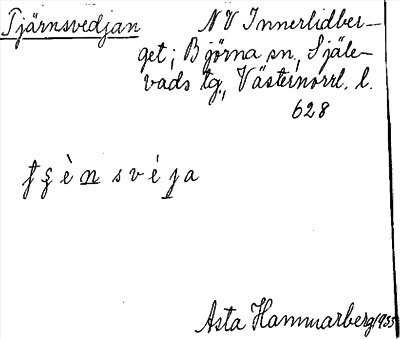 Tjärnsvedjan NV Innerlidber-
get; Björna sn, Själe-
vads tg., Västernorrl. l.
628
tʂènsvéja
Asta Hammarberg 1933